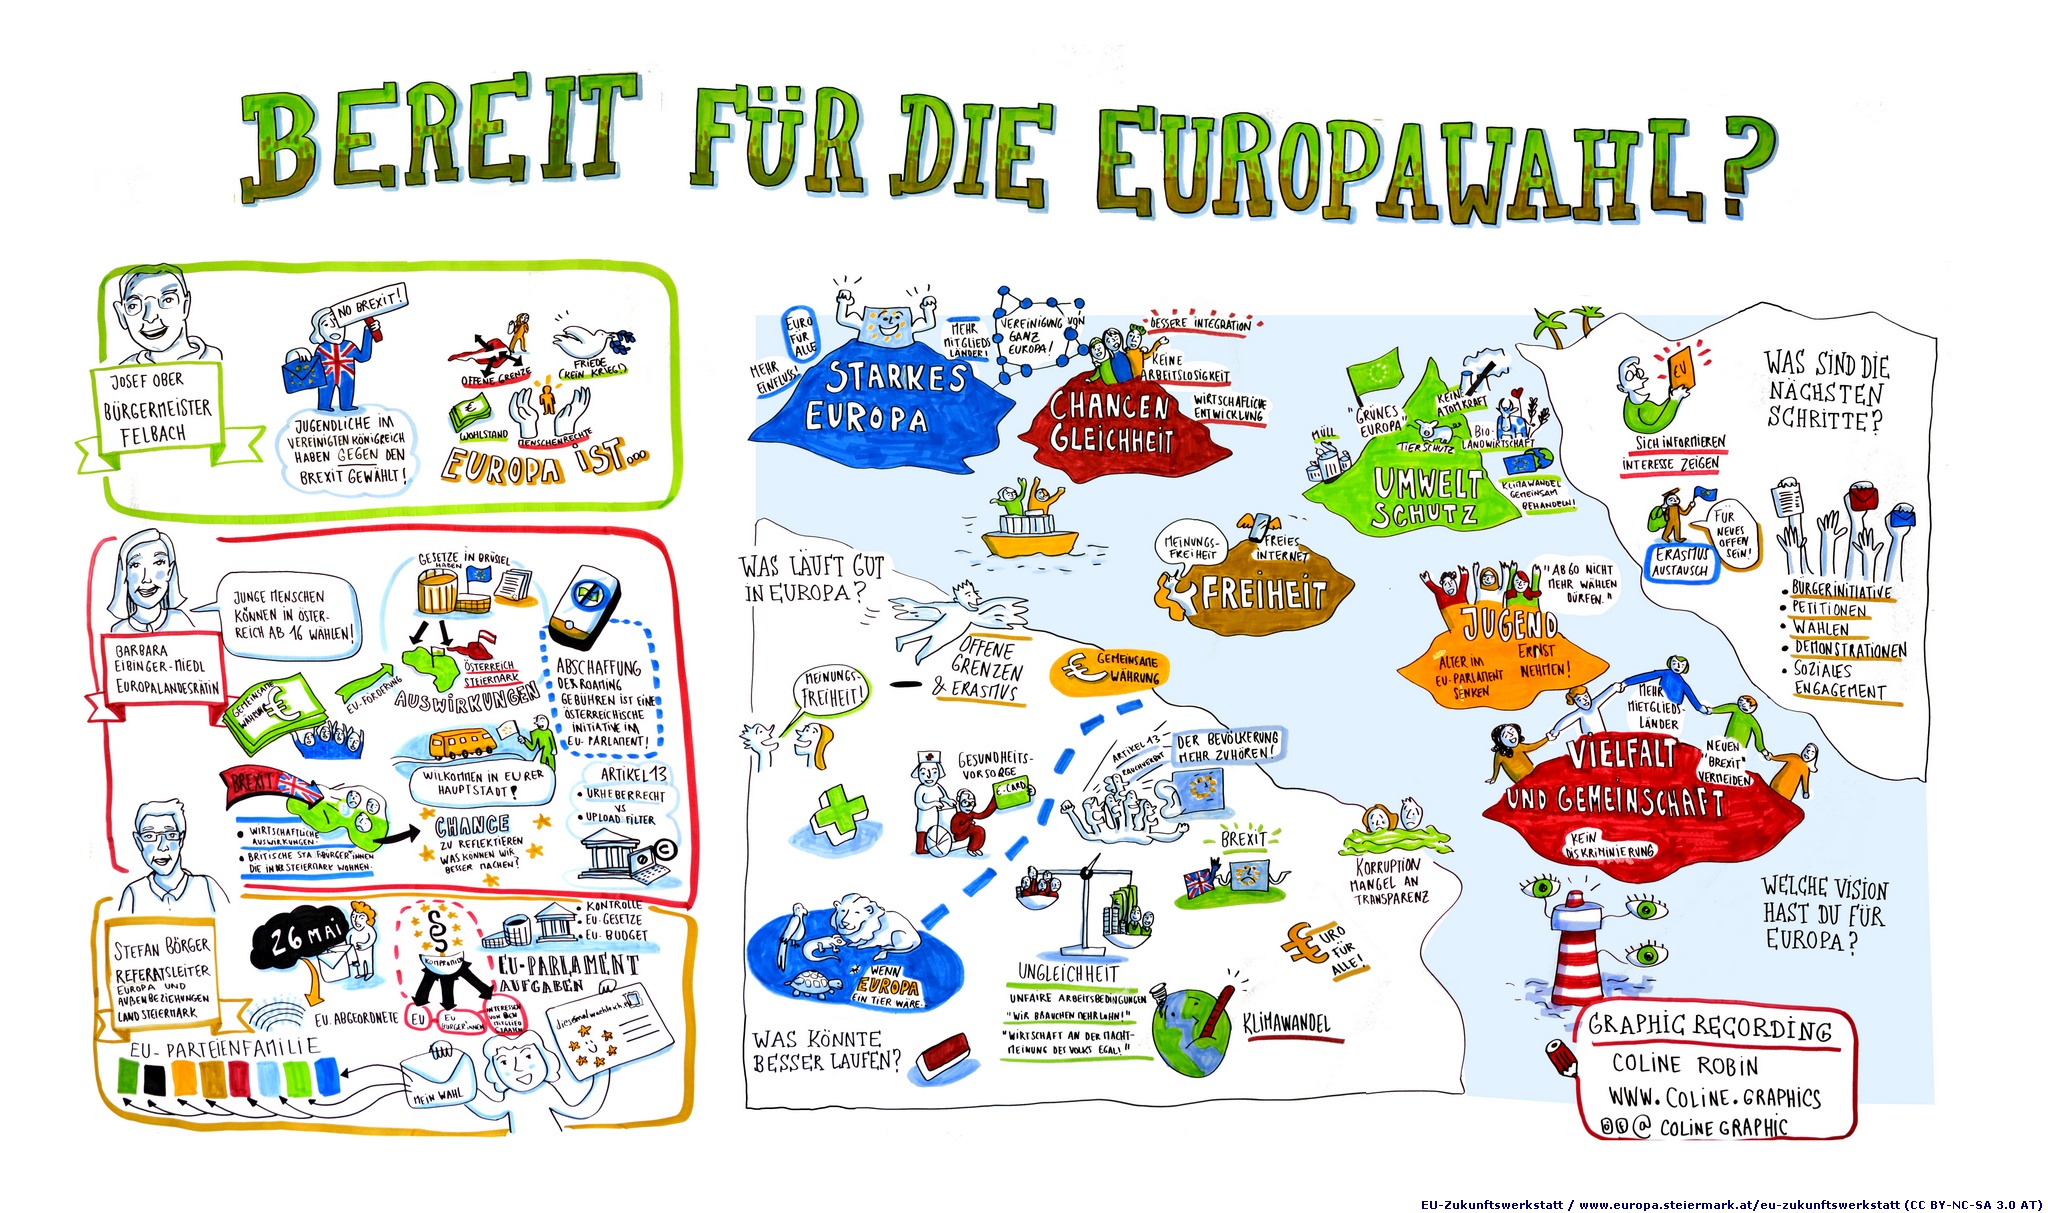 BEREIT FÜR DIE EUROPAWAHL?
JOSEF OBER
BÜRGERMEISTER
FELBACH
NO BREXIT!
JUGENDLICHE IM
VEREINIGTEN KÖNIGREICH
HABEN GEGEN DEN
BREXIT GEWÄHLT!
OFFENE GRENZE
FRIEDE
(KEIN KRIEG!)
WOHLSTAND
MENSCHENRECHTE
EUROPA IST...
BARBARA
EIBINGER-MIEDL
EUROPALANDESRÄTIN
JUNGE MENSCHEN
KÖNNEN IN ÖSTER-
REICH AB 16 WÄHLEN!
GESETZE IN BRÜSSEL
HABEN
ÖSTERREICH
STEIERMARK
AUSWIRKUNGEN
GEMEINSAME
WÄHRUNG
€
EU-FÖRDERUNG
ABSCHAFFUNG
DER ROAMING
GEBÜHREN IST EINE
ÖSTERREICHISCHE
INITIATIVE IM
EU-PARLAMENT!
WILKOMMEN IN EURER
HAUPTSTADT!
BREXIT
• WIRTSCHAFTLICHE
AUSWIRKUNGEN
• BRITISCHE STAATSBÜRGER*INNEN
DIE IN DER STEIERMARK WOHNEN
CHANCE
ZU REFLEKTIEREN
WAS KÖNNEN WIR
BESSER MACHEN?
ARTIKEL 13
• URHEBERRECHT
VS
• UPLOAD FILTER
©
STEFAN BÖRGER
REFERATSLEITER
EUROPA UND
AUßENBEZIEHUNGEN
LAND STEIERMARK
26 MAI
EU-ABGEORDNETE
§
KOMPROMISS
EU
EU
BÜRGER*INNEN
INTERESSEN
VON DEN
MITGLIED
STAATEN
• KONTROLLE
• EU-GESETZE
• EU-BUDGET
EU-PARLAMENT
AUFGABEN
EU-PARTEIENFAMILIE
MEIN WAHL
diesmalwaehleich.eu
EURO
FÜR
ALLE
MEHR
EINFLUSS!
MEHR
MITGLIEDS
LÄNDER!
STARKES
EUROPA
VEREINIGUNG VON
GANZ
EUROPA!
BESSERE INTEGRATION
KEINE
ARBEITSLOSIGKEIT
WIRTSCHAFLICHE
ENTWICKLUNG
CHANCEN
GLEICHHEIT
"GRÜNES
EUROPA"
KEINE
ATOMKRAFT
MÜLL
TIERSCHUTZ
BIO-
LANDWIRTSCHAFT
KLIMAWANDEL
GEMEINSAM
BEHANDELN!
UMWELT
SCHUTZ
MEINUNGS-
FREIHEIT
FREIES
INTERNET
FREIHEIT
"AB 60 NICHT
MEHR WÄHLEN
DÜRFEN."
JUGEND
ERNST
NEHMEN!
ALTER IM
EU-PARLAMENT
SENKEN
MEHR
MITGLIEDS-
LÄNDER
VIELFALT
UND GEMEINSCHAFT
NEUEN
"BREXIT"
VERMEIDEN
KEIN
DISKRIMINIERUNG
WAS SIND DIE
NÄCHSTEN
SCHRITTE?
EU
SICH INFORMIEREN
INTERESSE ZEIGEN
FÜR
NEUES
OFFEN
SEIN!
ERASMUS
AUSTAUSCH
• BÜRGERINITIATIVE
• PETITIONEN
• WÄHLEN
• DEMONSTRATIONEN
• SOZIALES
ENGAGEMENT
WELCHE VISION
HAST DU FÜR
EUROPA?
WAS LÄUFT GUT
IN EUROPA?
OFFENE
GRENZEN
& ERASMUS
MEINUNGS-
FREIHEIT!
€ GEMEINSAME
WÄHRUNG
GESUNDHEITS-
VORSORGE
E-CARD
ARTIKEL 13
RAUCHVERBOT
DER BEVÖLKERUNG
MEHR ZUHÖREN!
BREXIT
KORRUPTION
MANGEL AN
TRANSPARENZ
WENN
EUROPA
EIN TIER WÄRE...
UNGLEICHHEIT
UNFAIRE ARBEITSBEDINGUNGEN
"WIR BRAUCHEN MEHR LOHN!"
"WIRTSCHAFT AN DER MACHT-
MEINUNG DES VOLKS EGAL!"
€URO
FÜR
ALLE!
KLIMAWANDEL
WAS KÖNNTE
BESSER LAUFEN?
GRAPHIC RECORDING
COLINE ROBIN
WWW.COLINE.GRAPHICS
@ COLINE GRAPHIC
EU-Zukunftswerkstatt / www.europa.steiermark.at/eu-zukunftswerkstatt (CC BY-NC-SA 3.0 AT)